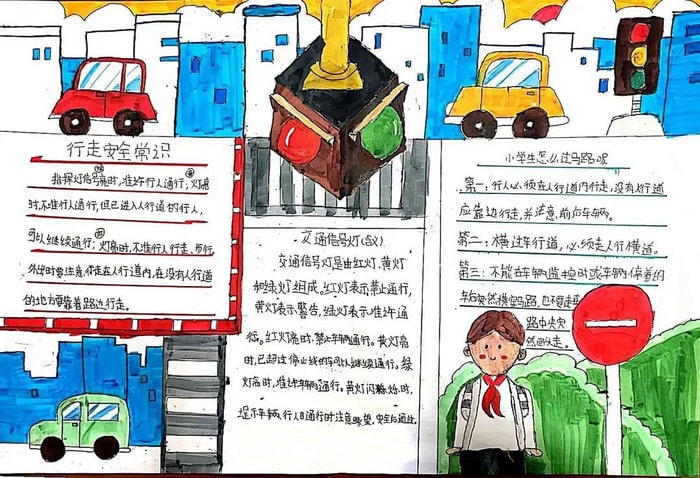 行走安全常识
指挥灯信号绿时,准许行人通行;灯亮
时,不准行人通行,但已进入人行道的行人,
可以继续通行;灯亮时,不准行人行走、而行
外出时要注意你走在人行道内,在没有人行道
的地方要靠着路边行走。
交通信号灯(含义)
交通信号灯是由红灯,黄灯
和绿灯组成,红灯表示禁止通行,
黄灯表示警告,绿灯表示准许通
行。红灯亮时,禁止车辆通行。黄灯亮
时,已超过停止线的车可以继续通行,绿
灯亮时,准许车辆通行。黄灯闪烁时,
提示车辆,行人通行时注意瞭望,安全后通过。
小学生怎么过马路呢
第一:行人必须在人行道内行走,没有人行道
应靠边行走,并注意,前向车辆。
第二:横过车行道,必须走人行横道。
第三:不能在车辆监控时或车辆停着的
车后突然横穿马路,也不要走在
路中央突
然回走。